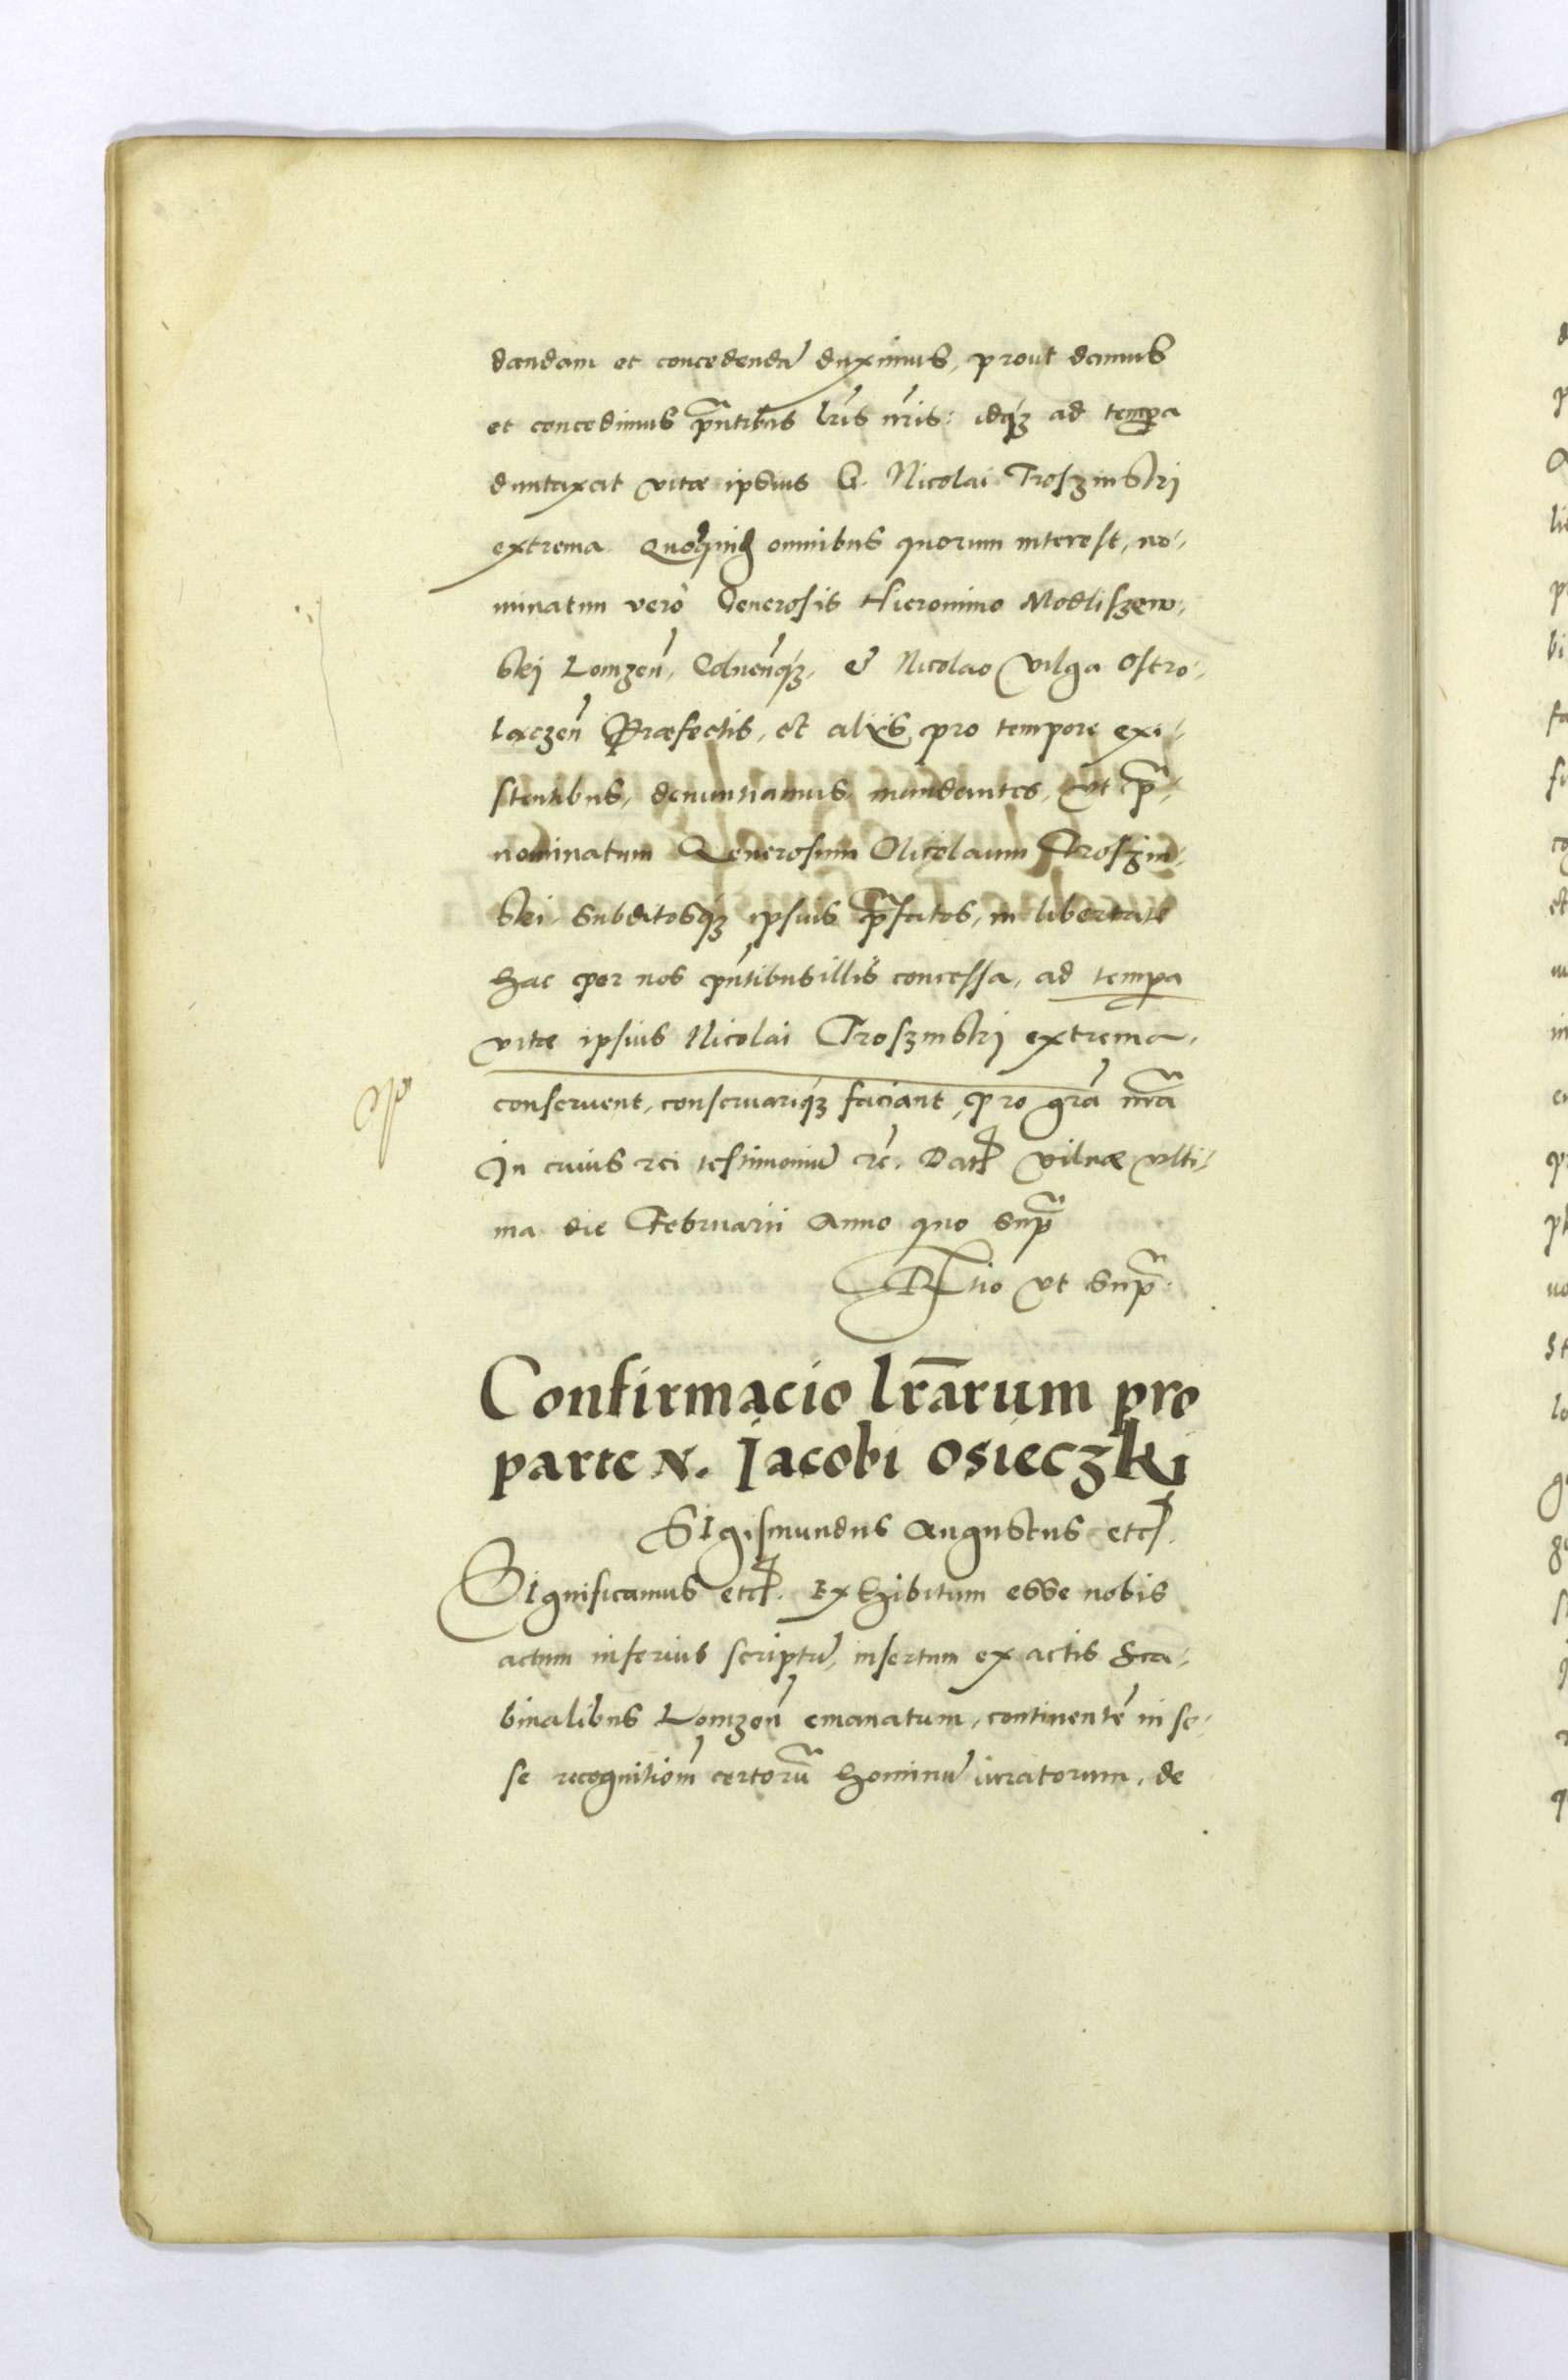 dandam et concedendā duximus, prout damus
et concedimus p̄ntibus lr̄is nr̄is: idq́ꝫ ad tempora
duntaxat vitæ ipsius G. Nicolai Troszinskij
extrema. omnibus quorum interest, no-
minatim verò Generosis Hieronimo Modliszew-
skij Lomzen̄, Colnen̄q́ꝫ, & Nicolao Vilga Ostro-
laczen̄ Præfectis, et alijs pro tempore exi-
stentibus, denuntiamus, mandantes, vt p̄-
nominatum Generosum Nicolaum Troszin-
ski, subditosq́ꝫ ipsius p̄fatos, in libertate
hac per nos p̄ntibus illis concessa, ad tempora
vitæ ipsius Nicolai Troszinskij extrema,
conservent, conservariq́ꝫ faciant, pro gr̄a nr̄a
In cuius rei testimoniū ec̄. Dat Vilnæ vlti-
ma die Februarii Anno quo sup̄
R̄tio vt sup̄.
Confirmacio lr̄arum pro
parte N. Jacobi Osieczki
Sigismundus Augustus etc.
Significamus etc. Exhibitum esse nobis
actum inferius scriptū, insertum ex actis Sca-
binalibus Lomzen̄ emanatum, continentē in se-
se recognitionē certorū hominū iuratorum, de